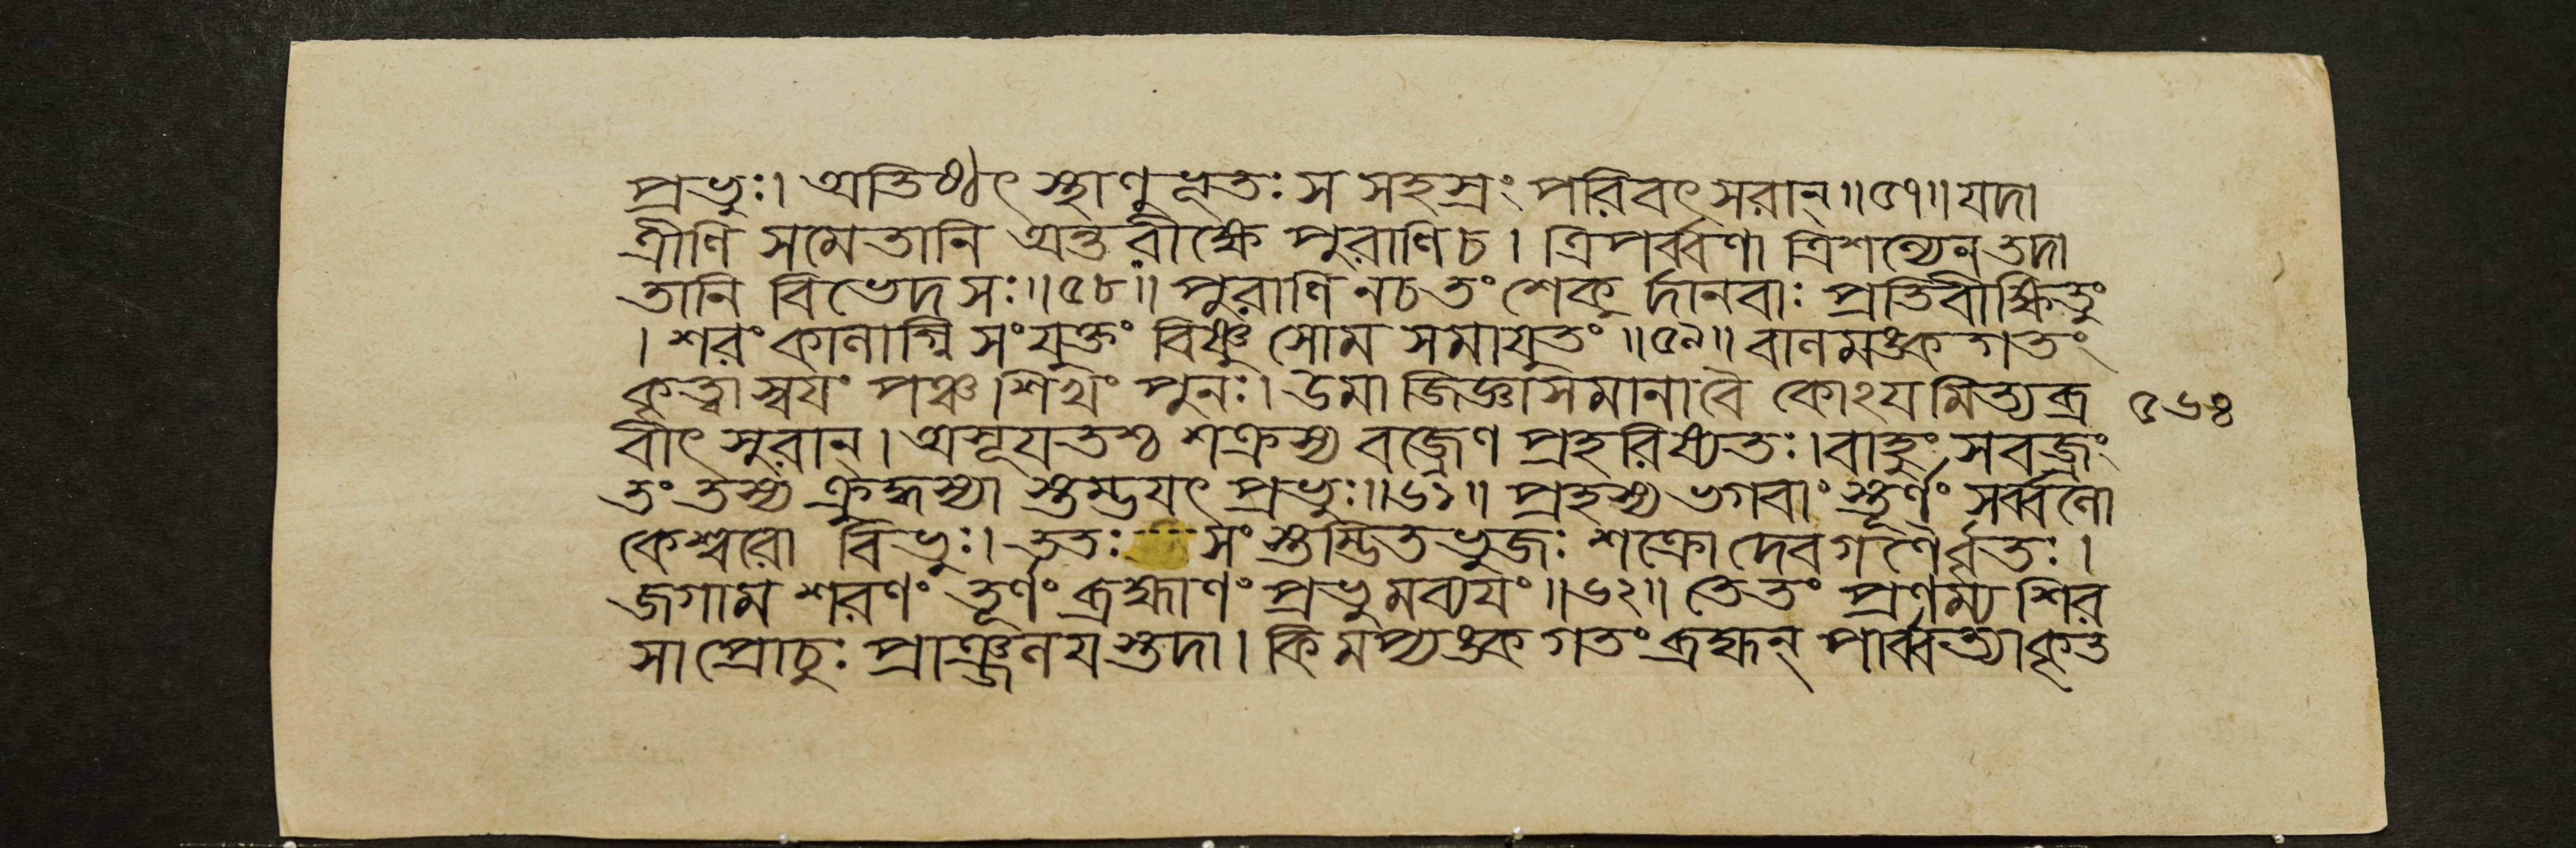 প্রভুঃ। অতিষ্ঠৎ স্থাণুভূতঃ স সহস্রং পরিবৎসরান্॥৫৭॥ যদা
ত্রীণি সমেতানি অন্তরীক্ষে পুরাণি চ। ত্রিপর্ব্বণা ত্রিশল্যেন তদা
তানি বিভেদ সঃ॥৫৮॥ পুরাণি নচ তং শেকুর্দানবাঃ প্রতিবীক্ষিতুং
। শরং কালাগ্নি সংযুক্তং বিষ্ণু সোম সমাযুতং॥৫৯॥ বালমঙ্কগতং
কৃত্বা স্বযং পঞ্চশিখং পুনঃ। উমা জিজ্ঞাসমানা বৈ কোঽযমিত্যব্র
বীৎ সুরান্। অসূযতশ্চ শক্রস্য বজ্রেণ প্রহরিষ্যতঃ। বাহুং সবজ্রং
তং তস্য ক্রুদ্ধস্যা স্তম্ভযৎ প্রভুঃ॥৬১॥ প্রহস্য ভগবাংস্তূর্ণং সর্ব্বলো
কেশ্বরো বিভুঃ। ততঃ সংস্তম্ভিতভুজঃ শক্রো দেবগণৈর্বৃতঃ।
জগাম শরণং তূর্ণং ব্রহ্মাণং প্রভুমব্যযং॥৬২॥ তে তং প্রণম্য শির
সা প্রোচুঃ প্রাঞ্জলযস্তদা। কিমপ্যঙ্কগতং ব্রহ্মন্ পার্ব্বত্যা কৃত
৫৬৪